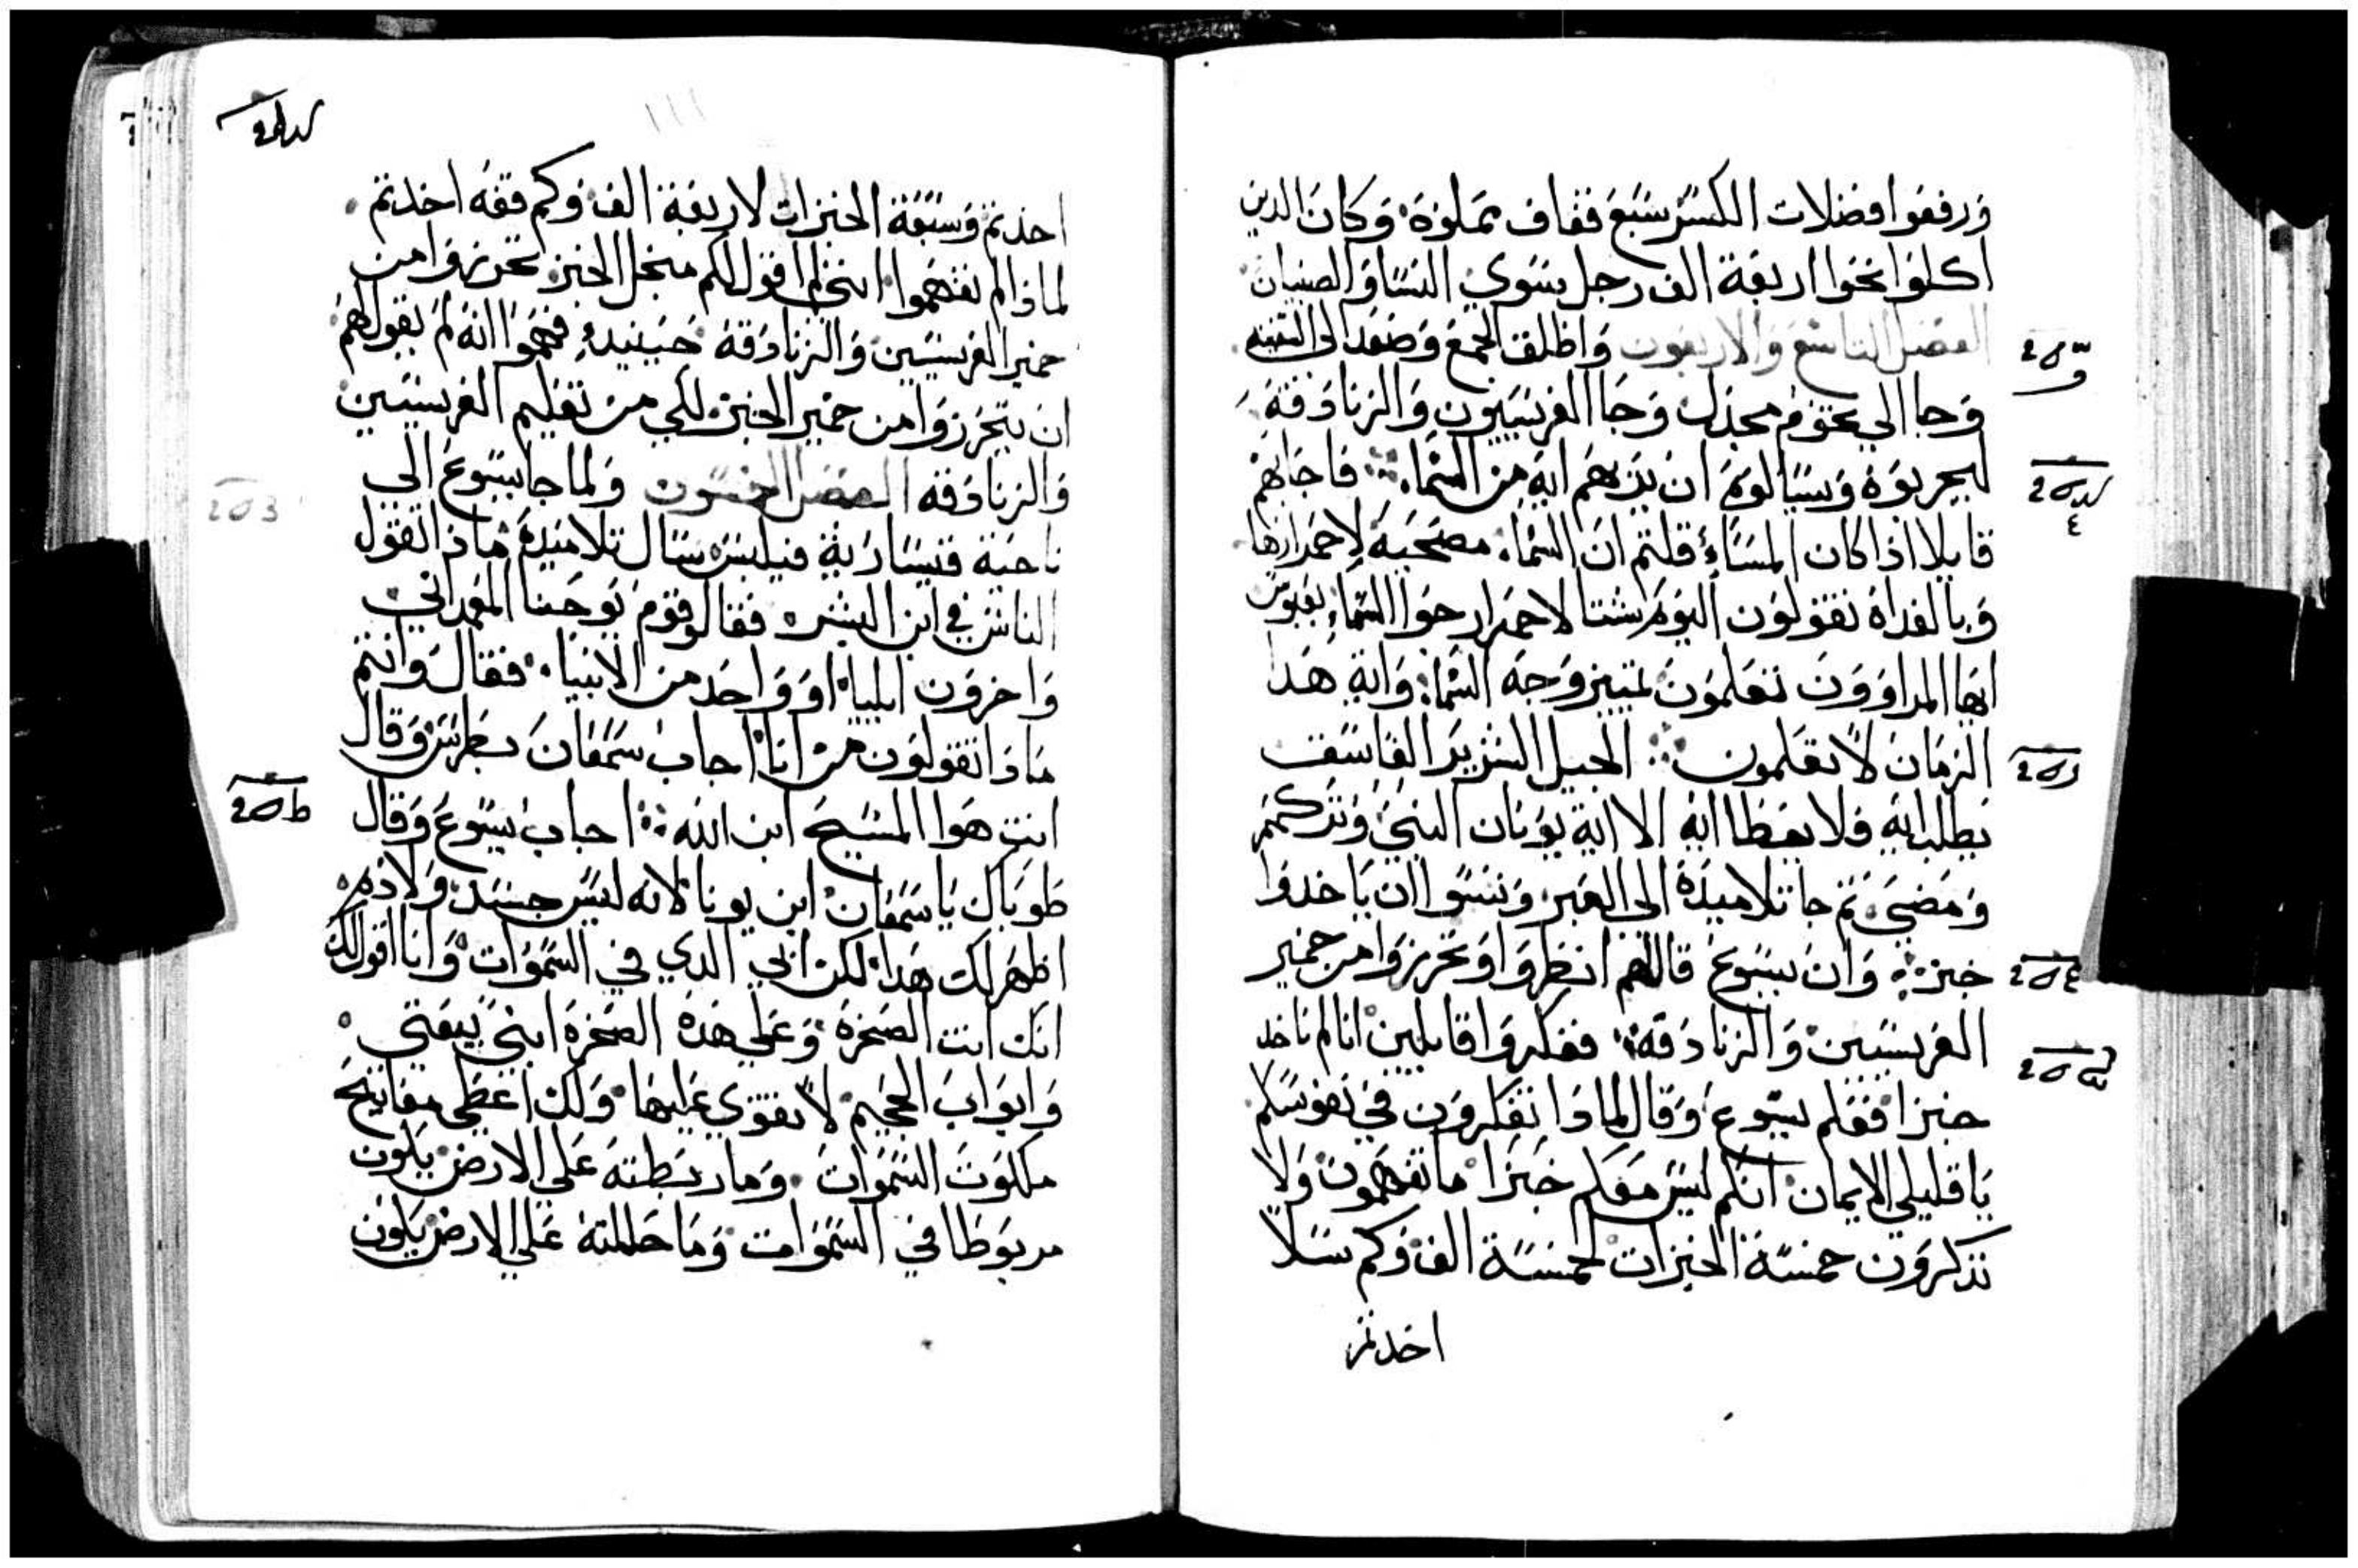 ورفعوا فضلات الكسر سبع قفاف مملوة وكان الدين
اكلوا نحوا اربعة الف رجل سوي النسا والصبيان
الفصل التاسع والاربعون واطلق الجمع وصعد الي السفينه
وجا الي تخوم مجدل وجا الفريسيون والزنادقة
ليجربوه وسالوه ان يريهم ايه من السما فاجابهم
قايلا اذا كان المساء قلتم ان السما مصحيه لاحمرارها
وبالغداه تقولون اليوم شتا لاحمرار جوا السماء بعبوس
ايها المراوون تعلمون تمييز وجه السما واية هدا
الزمان لا تعلمون الجيل الشرير الفاسق
يطلب ايه فلا يعطا ايه الا اية يونان النبي وتركهم
ومضي ثم جا تلاميده الي العبر ونسوا ان ياخدوا
خبز وان يسوع قال لهم انظروا وتحرزوا من خمير
الفريسيين والزنادقة ففكروا قايلين انا لم ناخد
خبزا فعلم يسوع وقال لماذا تفكرون في نفوسكم
يا قليلي الايمان انكم ليس معكم خبزا ما تفهمون ولا
تذكرون خمسة الخبزات لخمسة الف وكم سلا
اخدتم
احذتم وسبعة الخبزات لاربعة الف وكم قفه اخدتم
لماذا لم تفهموا انني لم اقول لكم منجل الخبز تحرزوا من
خمير الفريسيين والزنادقة حينيد فهموا انه لم يقول لهم
ان يتحرزوا من خمير الخبز لكي من تعليم الفريسيين
والزنادقه الفصل الخمسون ولما جا يسوع الي
ناحية قيسارية فيلبس سال تلاميده ماذا تقول
الناس في ابن البشر فقالو قوم يوحنا المعمداني
واخرون ايليا او واحد من الانبيا فقال وانتم
ماذا تقولون من انا اجاب سمعان بطرس وقال
انت هوا المسيح ابن الله اجاب يسوع وقال
طوباك يا سمعان ابن يونا لانه ليس جسد ولا دم
اظهر لك هدا لكن ابي الدي في السموات وانا اقول لك
انك انت الصخرة وعلي هذه الصخرة ابني بيعتي
وابواب الجحيم لا تقوي عليها ولك اعطي مفاتيح
ملكوت السموات وما ربطته علي الارض يكون
مربوطا في السموات وما حللته علي الارض يكون